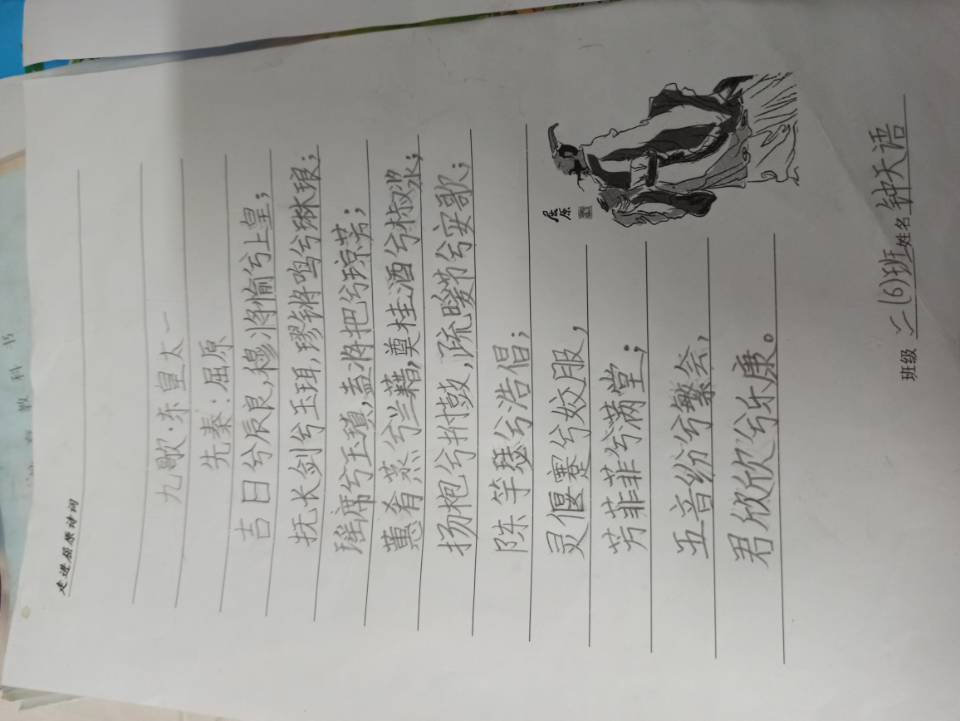 走进经典诗词
九歌·东皇太一
先秦:屈原
吉日兮辰良,穆将愉兮上皇;
抚长剑兮玉珥,璆锵鸣兮琳琅;
瑶席兮玉瑱,盍将把兮琼芳;
蕙肴蒸兮兰藉,奠桂酒兮椒浆;
扬枹兮拊鼓,疏缓节兮安歌;
陈竽瑟兮浩倡;
灵偃蹇兮姣服,
芳菲菲兮满堂;
五音纷兮繁会,
君欣欣兮乐康。
屈原
班级 二(6)班 姓名 钟天语
教科书